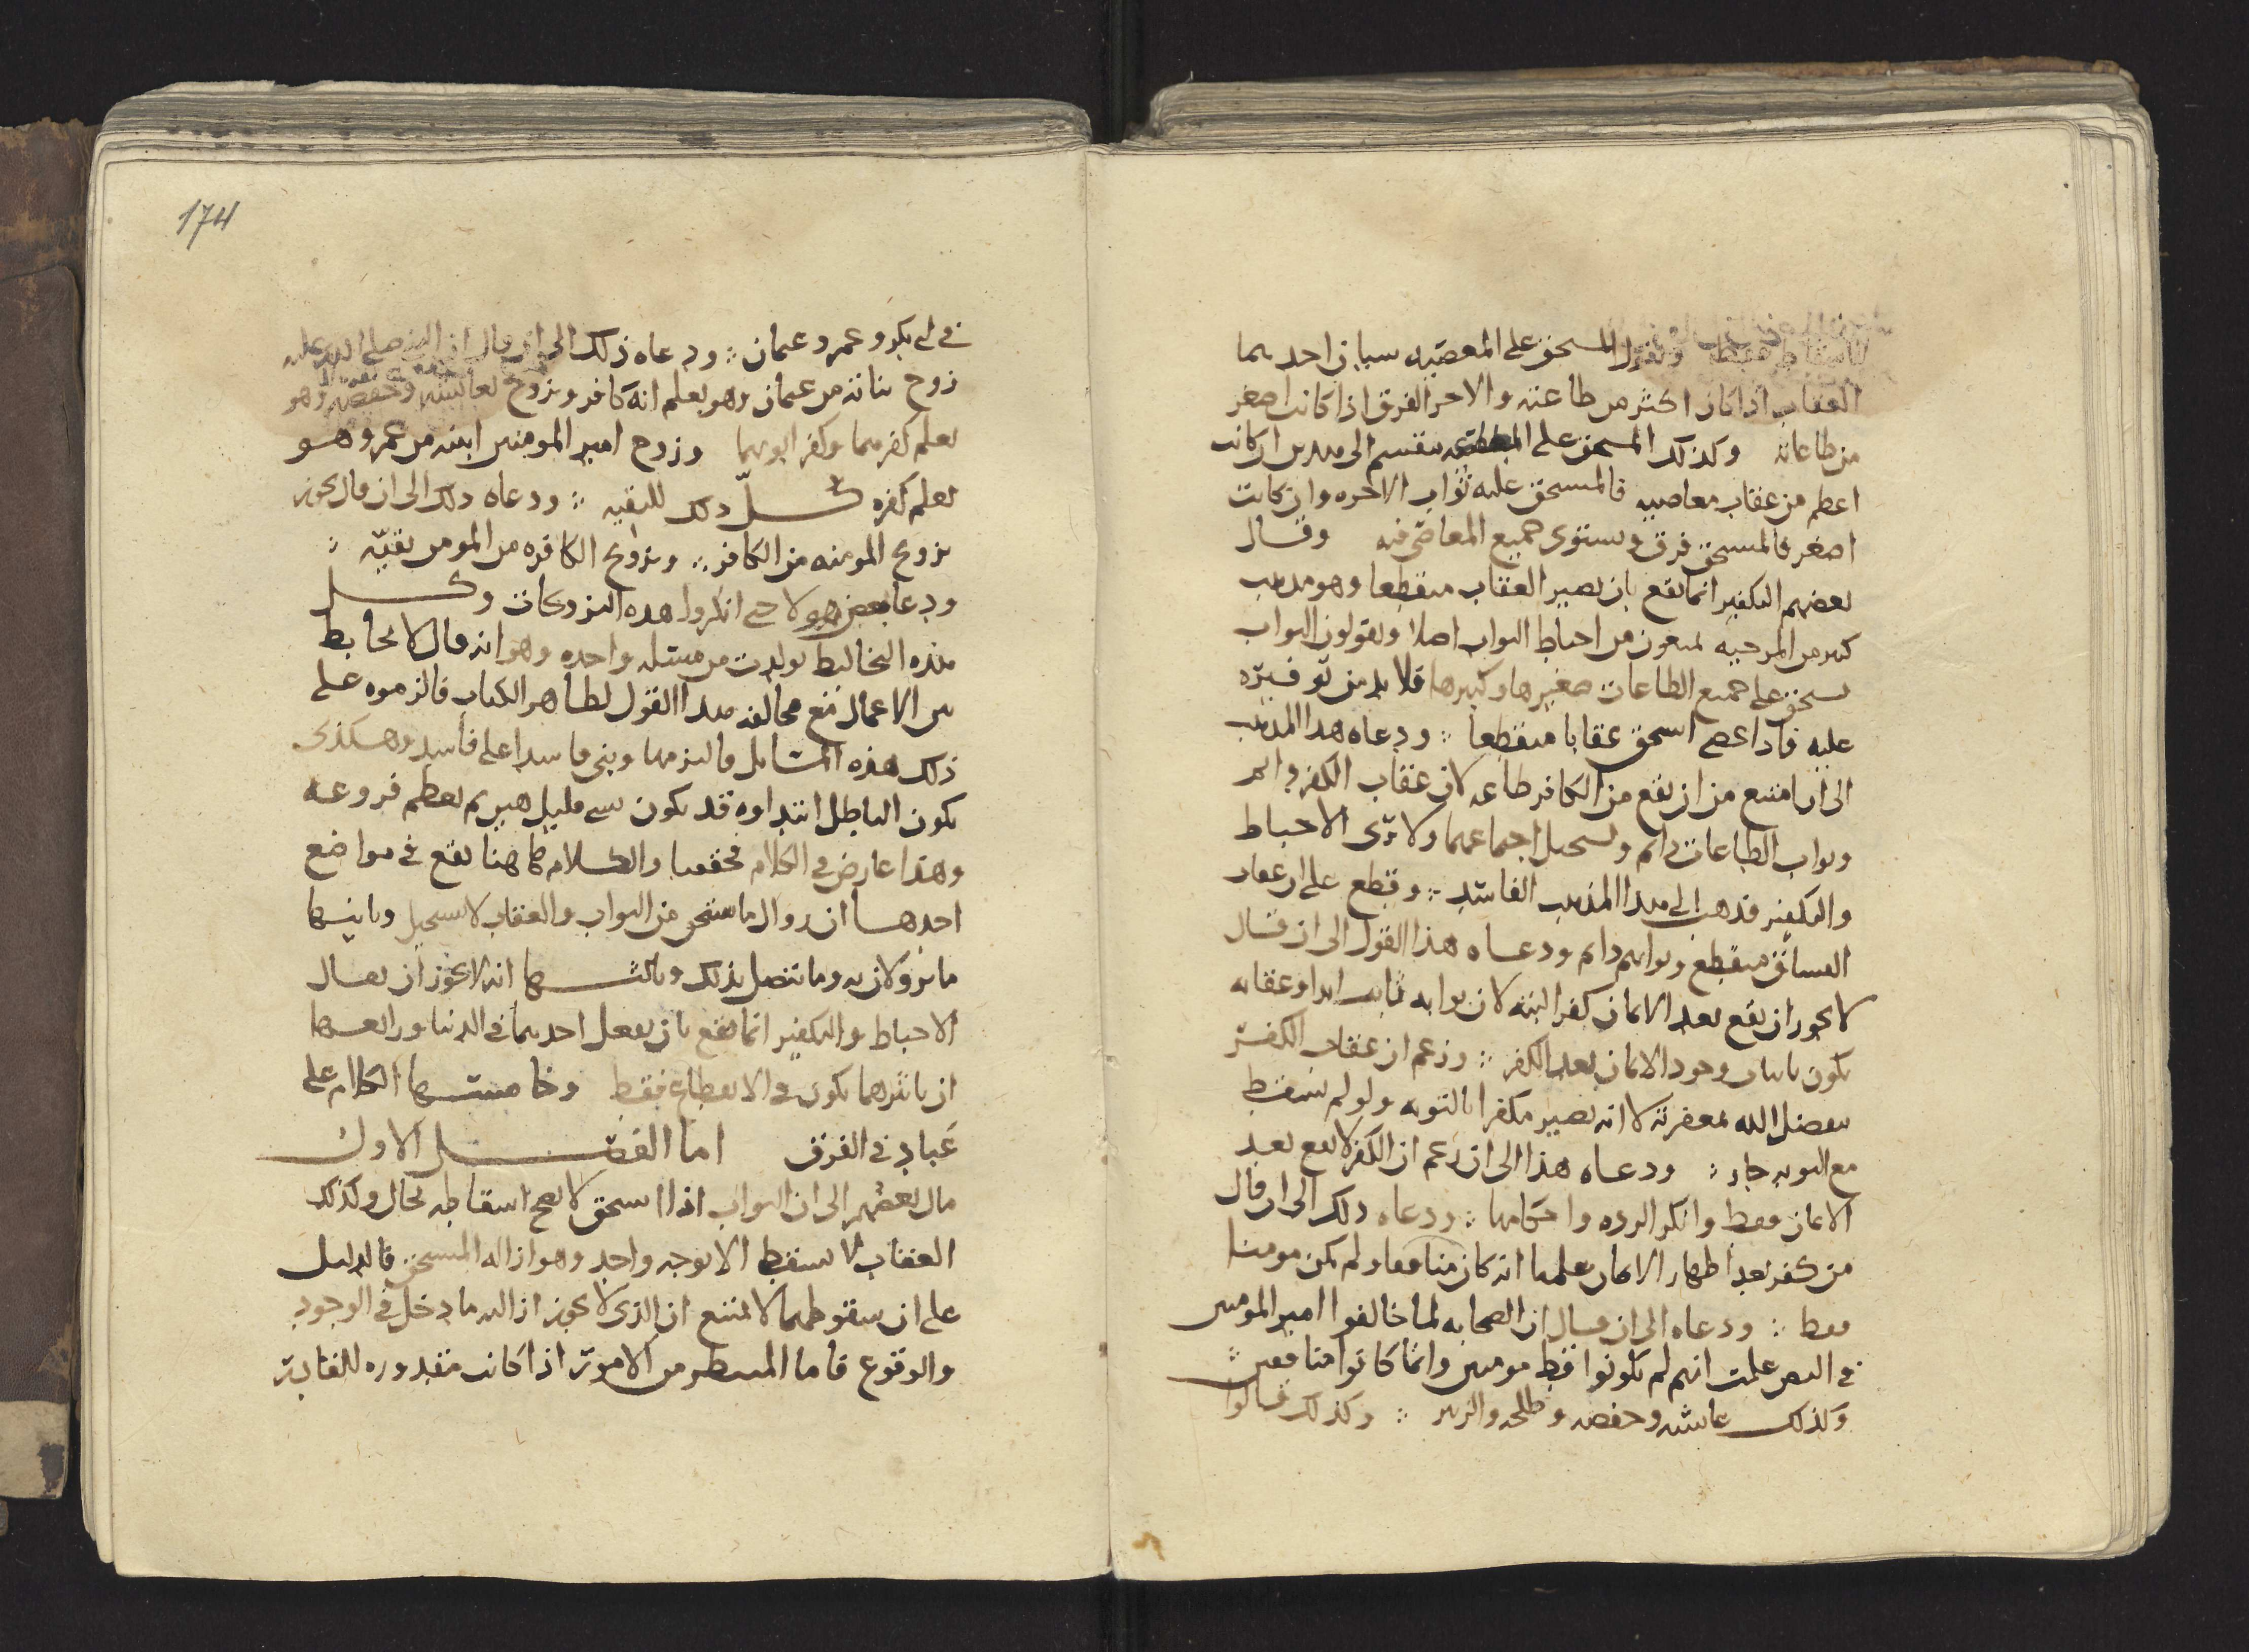 للاسقاط فقط ونقول المستحق على المعصيه سيان احدهما
العقاب اذا كان اكثر من طاعته والاخر الفرق اذا كانت اصغر
من طاعاته وكذلك المستحق على الطاعه ينقسم الى هدين ان كانت
اعظم من عقاب معاصيه فالمستحق عليه ثواب الاخره وان كانت
اصغر فالمستحق فرق ويستوى جميع المعاصى فيه وقال
بعضهم التكفير انما يقع بان يصير العقاب منقطعا وهو مذهب
كثير من المرجيه يمنعون من احباط الثواب اصلا ويقولون الثواب
يستحق على جميع الطاعات صغيرها وكبيرها فلا بد من توفيره
عليه فاذا عصى استحق عقابا منقطعا ودعاه هدا المذهب
الى ان امتنع من ان يقع من الكافر طاعه لان عقاب الكفر دائم
وثواب الطاعات دائم ويستحيل اجتماعهما ولا يرى الاحباط
والتكفير فذهب الى هدا المذهب الفاسد وقطع على ان عقاب
الفساق منقطع وثوابهم دائم ودعاه هذا القول الى ان قال
لا يجوز ان يقع بعد الايمان كفر البته لان ثوابه ثابت ابدا وعقابه
يكون باثبات وجود الايمان بعد الكفر وزعم ان عقاب الكفر
بفضل الله بمغفرته لا انه يصير مكفرا بالتوبه ولو لم يسقط
مع التوبه جاز ودعاه هذا الى ان زعم ان الكفر لا يقع بعد
الايمان فقط وانكر الرده واحكامها ودعاه ذلك الى ان قال
من كفر بعد اظهار الايمان علمنا انه كان منافقا ولم يكن مومنا
فقط ودعاه الى ان قال ان الصحابه لما خالفوا امير المومنين
فى النص علمت انهم لم يكونوا قط مومنين وانما كانوا منافقين
وكذلك عائشه وحفصه وطلحه والزبير وكذلك قالوا
174
فى ابى بكر وعمر وعثمان ودعاه ذلك الى ان قال ان النبى صلى الله عليه
زوج بناته من عثمان وهو يعلم انه كافر وتزوج بعائشه وحفصه وهو
يعلم كفرهما وكفر ابويهما وزوج امير المومنين ابنته من عمر وهو
يعلم كفره كل ذلك للتقيه ودعاه ذلك الى ان قال يجوز
تزويج المومنه من الكافر وتزويج الكافره من المومن تقيه
ودعا بعض هولا حتى انكروا هده التزويجات وكل
هذه التخاليط تولدت من مسئله واحده وهو انه قال لا تحابط
بين الاعمال مع مخالفه هدا القول لظاهر الكتاب فالزموه على
ذلك هذه المسائل فالتزمها وبنى فاسدا على فاسد وهكذى
يكون الباطل ابتداوه قد يكون بشى قليل هين ثم يعظم فروعه
وهذا عارض فى الكلام والكلام هاهنا يقع فى مواضع
احدها ان زوال ما يستحق من الثواب والعقاب لا يستحيل وثانيها
ما يزولان به وما يتصل بذلك وثالثها انه لا يجوز ان يقال
الاحباط والتكفير انما يقع بان يفعل احدهما فى الدنيا ورابعها
ان تاثيرهما يكون فى الانقطاع فقط وخامستها الكلام على
عباد فى الفرق اما الفصل الاول
مال بعضهم الى ان الثواب اذا استحق لا يصح اسقاطه بحال وكذلك
العقاب لا يسقط الا بوجه واحد وهو ازاله المستحق فالدليل
على ان سقوطهما لا يمتنع ان الذى لا يجوز ازالته ما دخل فى الوجود
والوقوع فاما المنتظر من الامور اذا كانت مقدوره للقادر